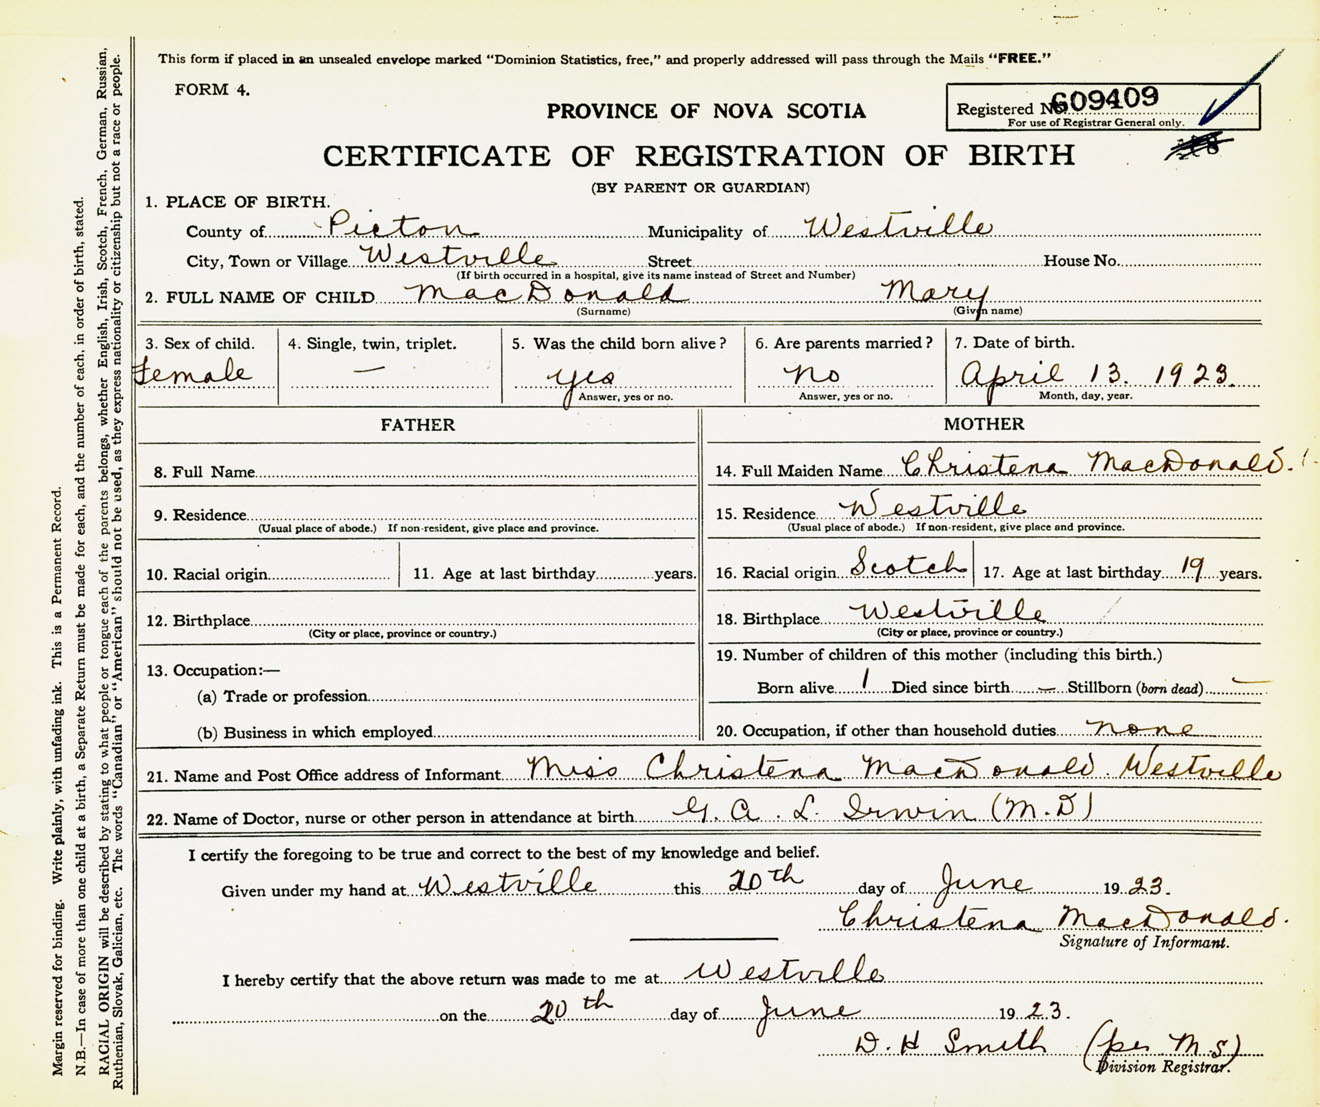 This form if placed in an unsealed envelope marked "Dominion Statistics, free," and properly addressed will pass through the Mails "FREE."
FORM 4.
Registered No. 609409
For use of Registrar General only.
PROVINCE OF NOVA SCOTIA
CERTIFICATE OF REGISTRATION OF BIRTH
(BY PARENT OR GUARDIAN)
1. PLACE OF BIRTH.
County of Pictou Municipality of Westville
City, Town or Village Westville Street House No.
(If birth occurred in a hospital, give its name instead of Street and Number)
2. FULL NAME OF CHILD MacDonald Mary
(Surname) (Given name)
3. Sex of child. 4. Single, twin, triplet. 5. Was the child born alive? 6. Are parents married? 7. Date of birth.
Female — yes no April 13. 1923.
Answer, yes or no. Answer, yes or no. Month, day, year.
FATHER
8. Full Name
9. Residence
(Usual place of abode.) If non-resident, give place and province.
10. Racial origin 11. Age at last birthday years.
12. Birthplace
(City or place, province or country.)
13. Occupation:—
(a) Trade or profession
(b) Business in which employed
MOTHER
14. Full Maiden Name Christena MacDonald.
15. Residence Westville
(Usual place of abode.) If non-resident, give place and province.
16. Racial origin Scotch 17. Age at last birthday 19 years.
18. Birthplace Westville
(City or place, province or country.)
19. Number of children of this mother (including this birth.)
Born alive 1 Died since birth — Stillborn (born dead) —
20. Occupation, if other than household duties none
21. Name and Post Office address of Informant Miss Christena MacDonald. Westville
22. Name of Doctor, nurse or other person in attendance at birth G. A. L. Irwin (M.D)
I certify the foregoing to be true and correct to the best of my knowledge and belief.
Given under my hand at Westville this 20th day of June 1923.
Christena MacDonald.
Signature of Informant.
I hereby certify that the above return was made to me at Westville
on the 20th day of June 1923.
D. H Smith (per M.S)
Division Registrar.
Margin reserved for binding. Write plainly, with unfading ink. This is a Permanent Record.
N.B.—In case of more than one child at a birth, a Separate Return must be made for each, and the number of each, in order of birth, stated.
RACIAL ORIGIN will be described by stating to what people or tongue each of the parents belongs, whether English, Irish, Scotch, French, German, Russian,
Ruthenian, Slovak, Galician, etc. The words "Canadian" or "American" should not be used, as they express nationality or citizenship but not a race or people.